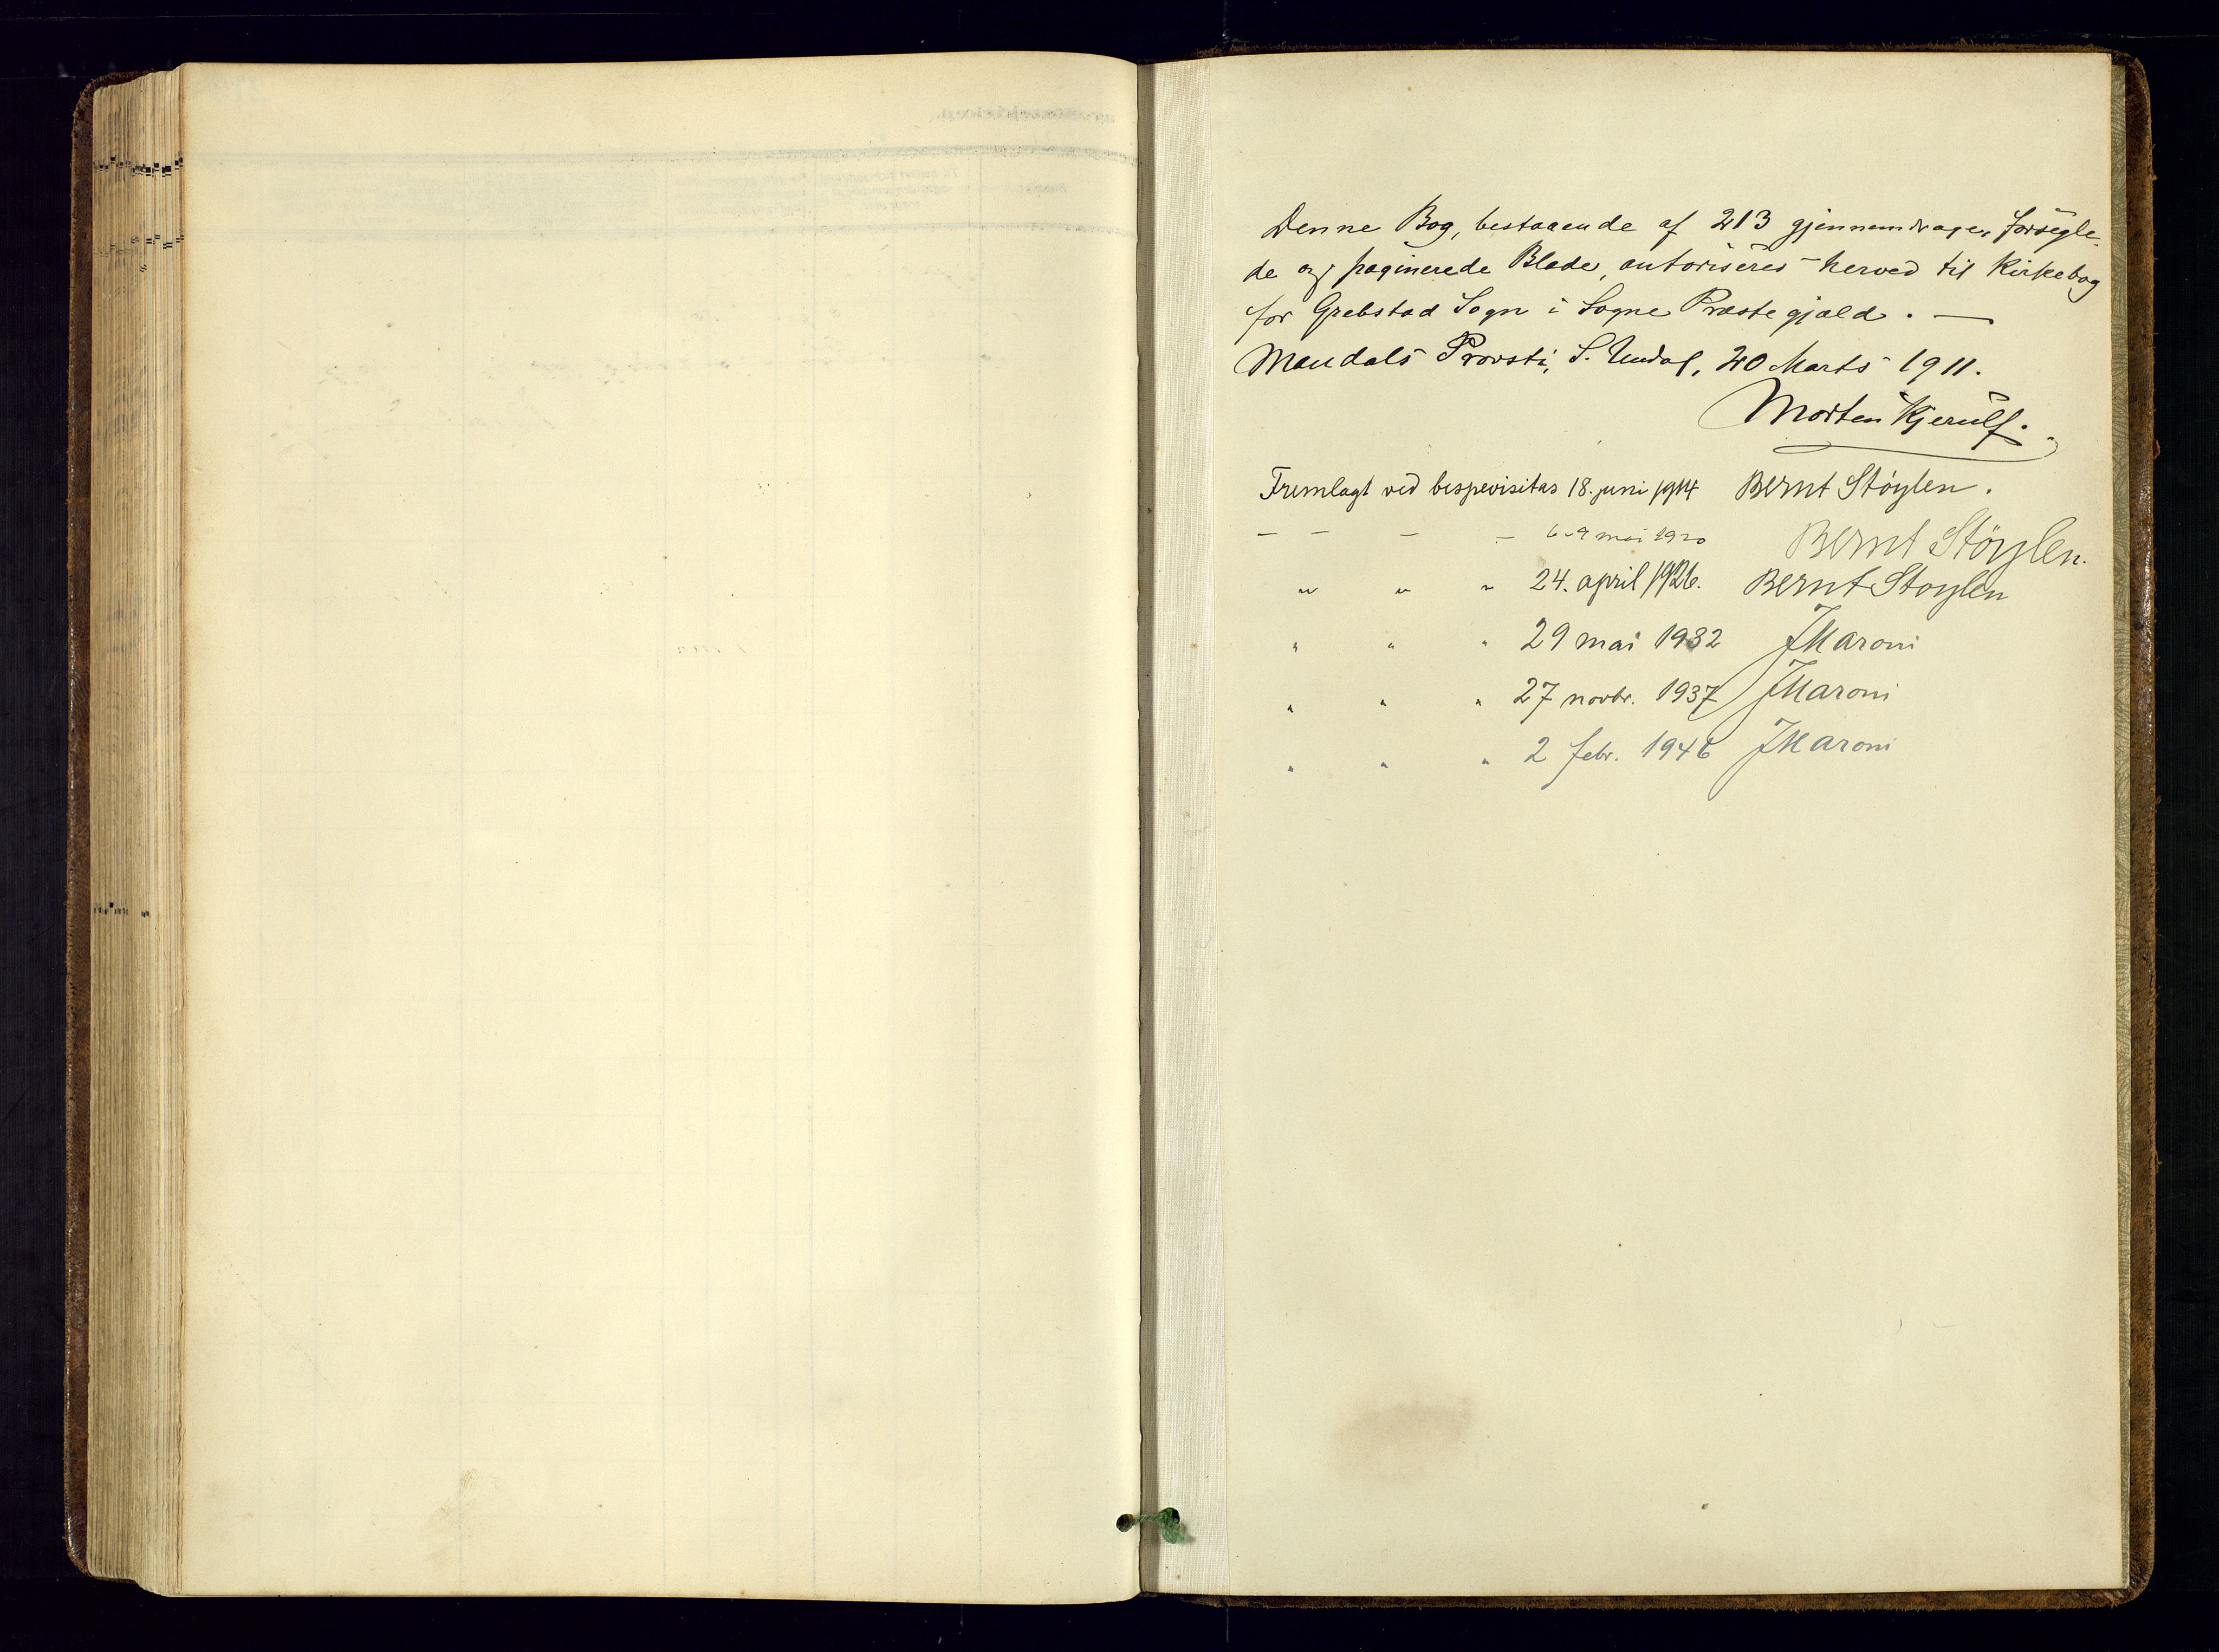 Denne Bog, bestaaende af 213 gjennemdragne, forsegle-
de og paginerede Blade, autoriseres herved til Kirkebog
for Grebstad Sogn i Sogne Præstegjæld. —
Mandals Provsti, S. Undal, 20 Marts 1911.
Morten Kjerulf.
Fremlagt ved bispevisitas 18. juni 1914 Bernt Støylen.
— — — — 6-9 mai 1920 Bernt Støylen.
" " " 24. april 1926. Bernt Støylen
" " " 29 mai 1932 JMaroni
" " " 27 novbr. 1937 JMaroni
" " " 2 febr. 1946 JMaroni